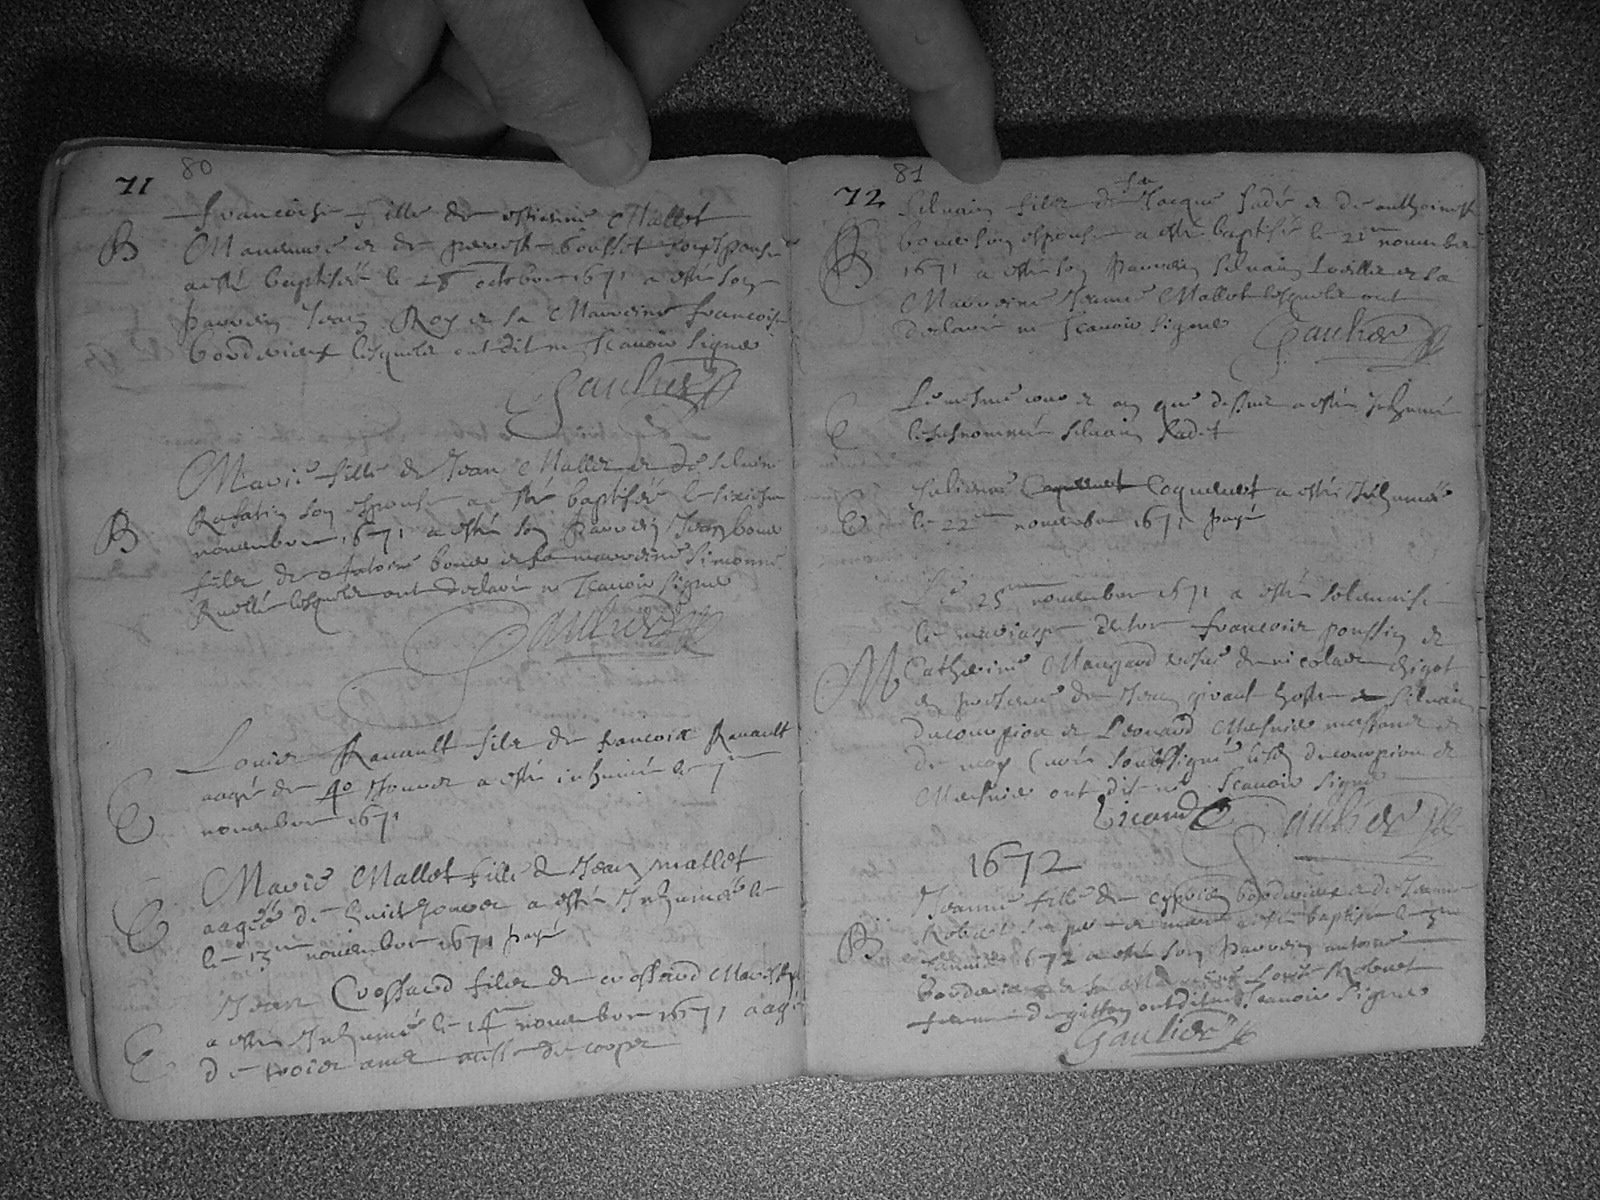 80
71
B
francoise fille de estienne Mallot
Manennie et de perrette boullot son espouse
a esté baptisée le 28 octobre 1671 a esté son
parrein Jean Roy et sa Marreine francoise
borderieux lesquels ont dit ne scavoir signer
Gaulier
B
Marie fille de Jean Mallet et de silvine
Rafatin son espouse a esté baptisée le sixiesme
novembre 1671 a esté son parrein Jean boue
fils de Antoine boue et sa marreine Simonne
Ruellé lesquels ont declaré ne scavoir signer
Gaulier
E
Louis Renault fils de francois Renault
aagé de 40 Jours a esté inhumé le 7me
novembre 1671
E
Marie Mallot fille de Jean mallot
aagée de huict Jours a esté Inhumée le
le 13me novembre 1671 payé
E
Jean Crossard fils de crossard
a esté Inhumé le 14me novembre 1671 aagé
de trois ans
81
72
B
Silvain fils de feu Jacques Jadé et de anthoinette
boue son espouse a esté baptisé le 21me novembre
1671 a esté son parrein silvain et sa
Marreine Jeanne Mallot lesquels ont
declaré ne scavoir signer
Gaulier
E
Le mesme jour et an que dessus a esté Inhumé
le susnommé silvain Jadé
E
Julienne Coquenet a esté Inhumée
le 22me novembre 1671 payé
M
Le 25me novembre 1671 a esté solennisé
le mariage de francois poussin et
Catherine Mangard vefve de nicolas bigot
en presence de Jean givaut hoste et silvain
ducoupion et Leonard Mesnie
de moy Curé soubsigné lesd ducoupion et
Mesnie ont dit ne scavoir signer
Gaulier
1672
B
Jeanne fille de ciprien borderieux et de Jeanne
Robert ses pere et mere a esté baptisée le 3me
Janvier 1672 a esté son parrein antoine
borderieux et sa Marreine Louise Robert
femme de gitton ont dit ne scavoir signer
Gaulier